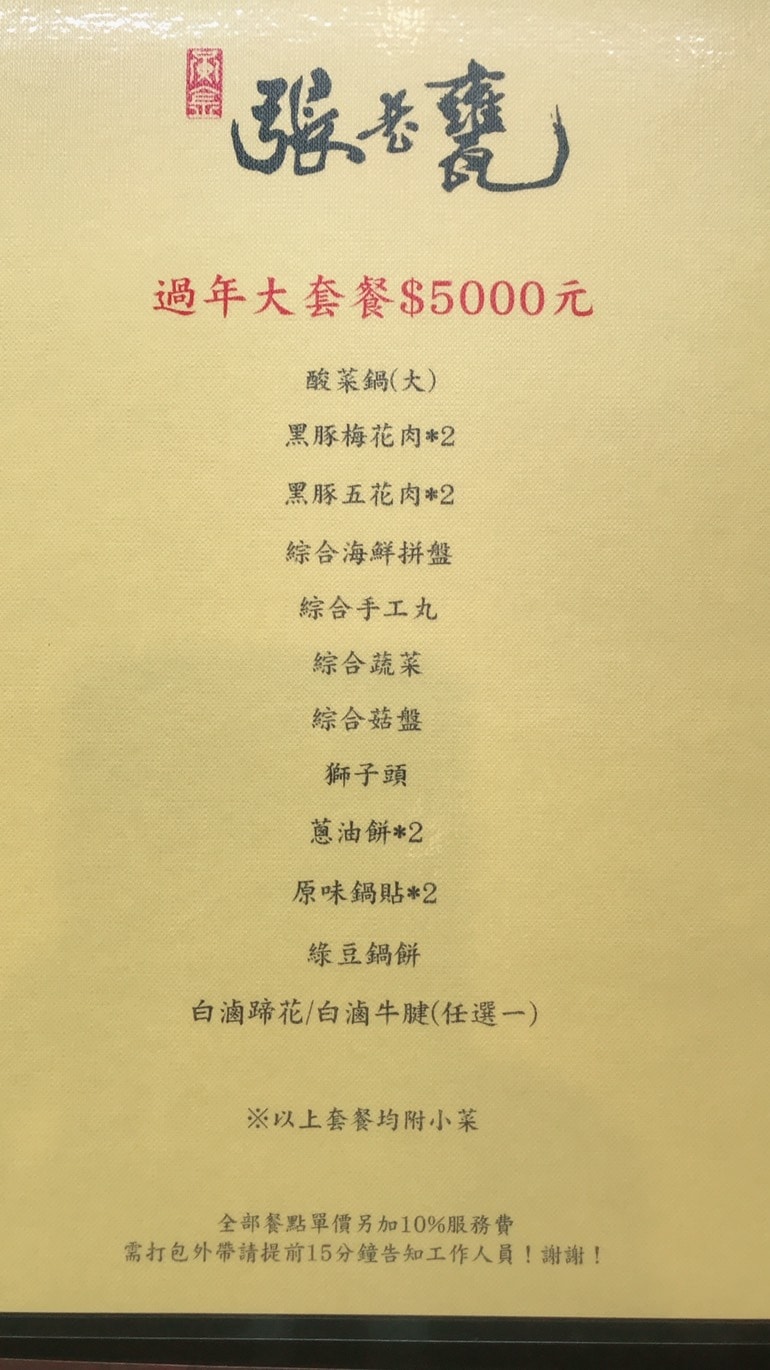 張老甕
過年大套餐$5000元
酸菜鍋(大)
黑豚梅花肉*2
黑豚五花肉*2
綜合海鮮拼盤
綜合手工丸
綜合蔬菜
綜合菇盤
獅子頭
蔥油餅*2
原味鍋貼*2
綠豆鍋餅
白滷蹄花/白滷牛腱(任選一)
※以上套餐均附小菜
全部餐點單價另加10%服務費
需打包外帶請提前15分鐘告知工作人員！謝謝！